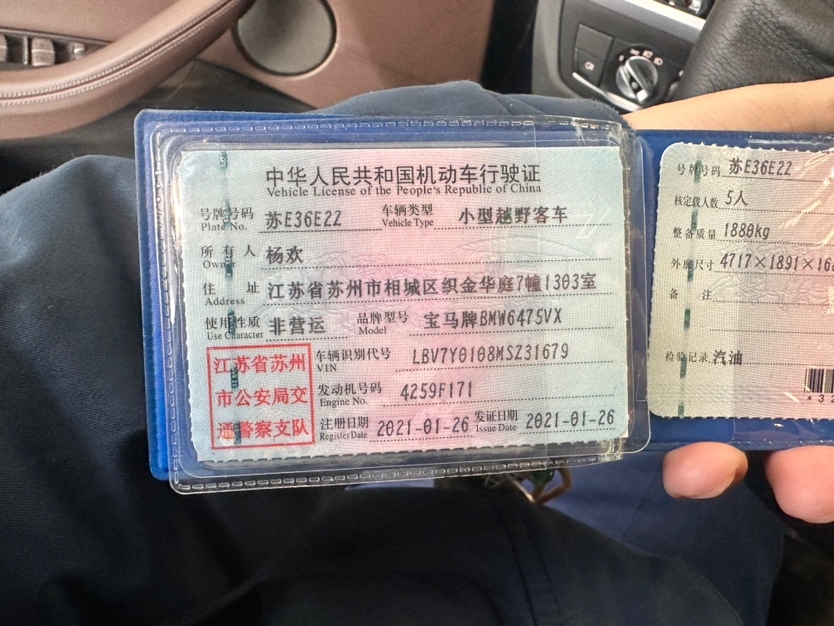 中华人民共和国机动车行驶证
Vehicle License of the People's Republic of China
号牌号码 苏E36E2Z 车辆类型 小型越野客车
Plate No. Vehicle Type
所有人 杨欢
Owner
住址 江苏省苏州市相城区织金华庭7幢1303室
Address
使用性质 非营运 品牌型号 宝马牌BMW6475VX
Use Character Model
江苏省苏州
市公安局交
通警察支队
车辆识别代号 LBV7Y0108MSZ31679
VIN
发动机号码 4259F171
Engine No.
注册日期 2021-01-26 发证日期 2021-01-26
Register Date Issue Date
号牌号码 苏E36E2Z
核定载人数 5人
整备质量 1880kg
外廓尺寸 4717×1891×16
备注
检验记录 汽油